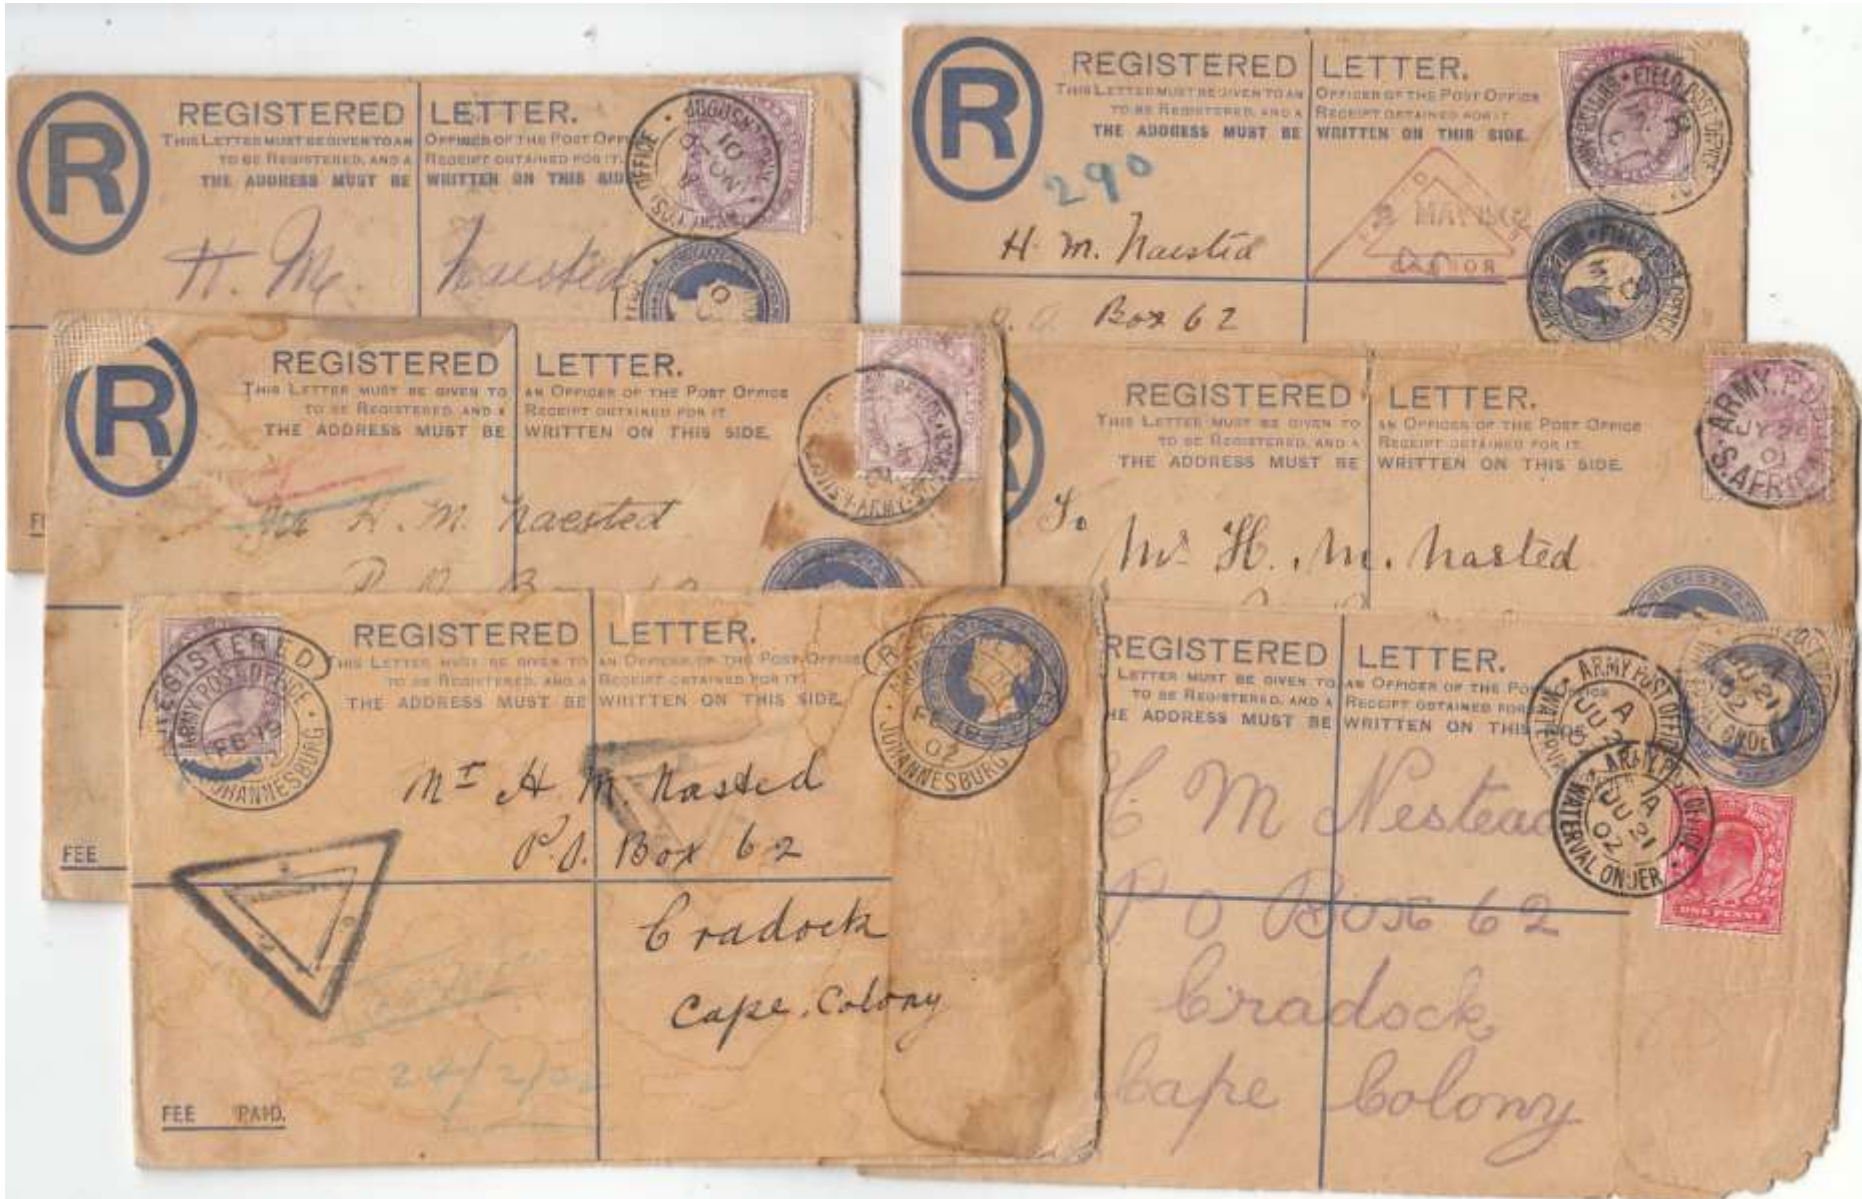 R
REGISTERED LETTER.
THIS LETTER MUST BE GIVEN TO AN OFFICER OF THE POST OFFICE
TO BE REGISTERED, AND A RECEIPT OBTAINED FOR IT.
THE ADDRESS MUST BE WRITTEN ON THIS SIDE
H. M. Naested
R
REGISTERED LETTER.
THIS LETTER MUST BE GIVEN TO AN OFFICER OF THE POST OFFICE
TO BE REGISTERED, AND A RECEIPT OBTAINED FOR IT
THE ADDRESS MUST BE WRITTEN ON THIS SIDE.
FIELD POST OFFICE
290
MAY
H. M. Naested
Box 62
R
REGISTERED LETTER.
THIS LETTER MUST BE GIVEN TO AN OFFICER OF THE POST OFFICE
TO BE REGISTERED, AND A RECEIPT OBTAINED FOR IT
THE ADDRESS MUST BE WRITTEN ON THIS SIDE.
H. M. Naested
FEE
REGISTERED LETTER.
THIS LETTER MUST BE GIVEN TO AN OFFICER OF THE POST OFFICE
TO BE REGISTERED, AND A RECEIPT OBTAINED FOR IT
THE ADDRESS MUST BE WRITTEN ON THIS SIDE.
ARMY.P.O.
JY 26
01
S.AFRICA
To
Mr H. M. Nasted
REGISTERED
ARMY POST OFFICE
FE 19
JOHANNESBURG
REGISTERED LETTER.
THIS LETTER MUST BE GIVEN TO AN OFFICER OF THE POST OFFICE
TO BE REGISTERED, AND A RECEIPT OBTAINED FOR IT.
THE ADDRESS MUST BE WRITTEN ON THIS SIDE.
FE 19
02
JOHANNESBURG
Mr H. M. Nasted
P.O. Box 62
Cradock
Cape Colony
24/2/02
FEE PAID.
REGISTERED LETTER.
LETTER MUST BE GIVEN TO AN OFFICER OF THE POST OFFICE
TO BE REGISTERED, AND A RECEIPT OBTAINED FOR
THE ADDRESS MUST BE WRITTEN ON THIS SIDE
ARMY POST OFFICE
A
JU 21
02
WATERVAL ONDER
M Nestead
P O Box 62
Cradock
Cape Colony
ONE PENNY